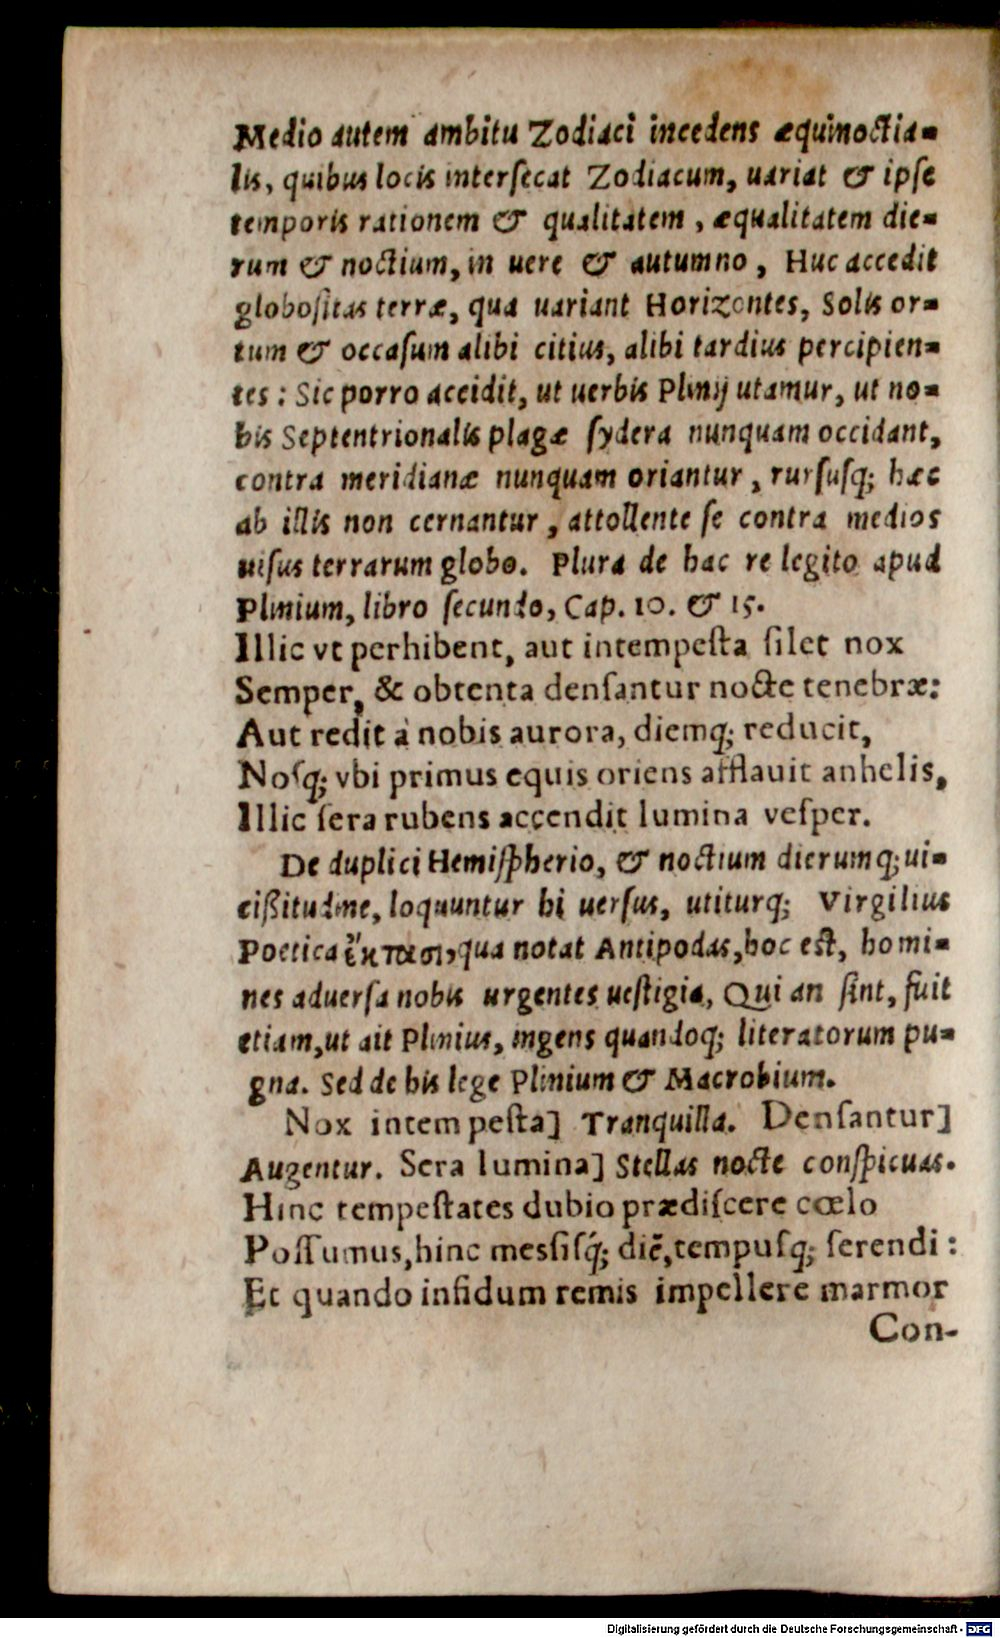 Medio autem ambitu Zodiaci incedens æquinoctia-
lis, quibus locis intersecat Zodiacum, uariat & ipse
temporis rationem & qualitatem, æqualitatem die-
rum & noctium, in uere & autumno, Huc accedit
globoſitas terræ, qua uariant Horizontes, Solis or-
tum & occaſum alibi citius, alibi tardius percipien-
tes: Sic porro accidit, ut uerbis Plinij utamur, ut no-
bis Septentrionalis plagæ ſydera nunquam occidant,
contra meridianæ nunquam oriantur, rurſuſq; hæc
ab illis non cernantur, attollente ſe contra medios
uiſus terrarum globo. Plura de hac re legito apud
Plinium, libro ſecundo, Cap. 10. & 15.
Illic vt perhibent, aut intempeſta ſilet nox
Semper, & obtenta denſantur nocte tenebræ:
Aut redit à nobis aurora, diemq; reducit,
Noſq; vbi primus equis oriens afflauit anhelis,
Illic ſera rubens accendit lumina veſper.
De duplici Hemiſpherio, & noctium dierumq; ui-
ciſsitudine, loquuntur hi uerſus, utiturq; Virgilius
Poetica ἔκτασι, qua notat Antipodas, hoc eſt, homi-
nes aduerſa nobis urgentes ueſtigia, Qui an ſint, fuit
etiam, ut ait Plinius, ingens quandoq; literatorum pu-
gna. Sed de his lege Plinium & Macrobium.
Nox intempeſta] Tranquilla. Denſantur]
Augentur. Sera lumina] Stellas nocte conſpicuas.
Hinc tempeſtates dubio prædiſcere cœlo
Poſſumus, hinc meſſiſq́; diē, tempuſq; ſerendi:
Et quando infidum remis impellere marmor
Con-
Digitalisierung gefördert durch die Deutsche Forschungsgemeinschaft - DFG